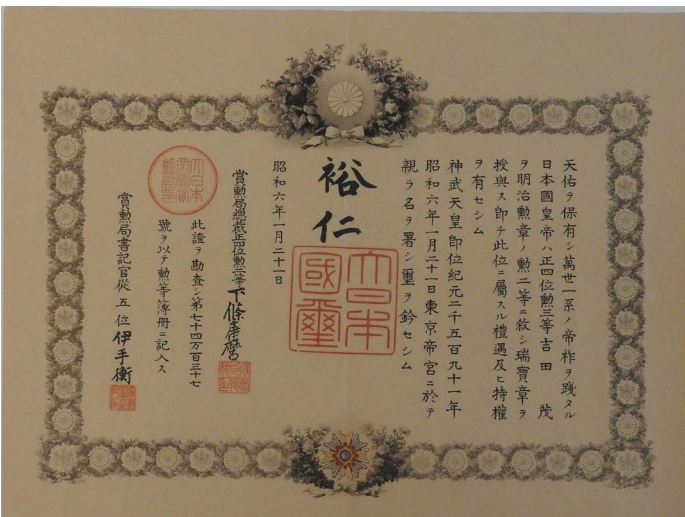 天佑ヲ保有シ萬世一系ノ帝祚ヲ踐タル
日本國皇帝ハ正四位勲三等吉田茂
ヲ明治勲章ノ勲二等ニ敘シ瑞寶章ヲ
授與ス即チ此位ニ屬スル禮遇及ヒ特權
ヲ有セシム
神武天皇即位紀元二千五百九十一年
昭和六年一月二十一日東京帝宮ニ於テ
親ラ名ヲ署シ璽ヲ鈐セシム
裕仁
大日本國璽
昭和六年一月二十一日
賞勲局總裁正四位勲二等下條康麿
此證ヲ勘査シ第七十四万百三十七
號ヲ以テ勲等簿册ニ記入ス
賞勲局書記官從五位伊手衡